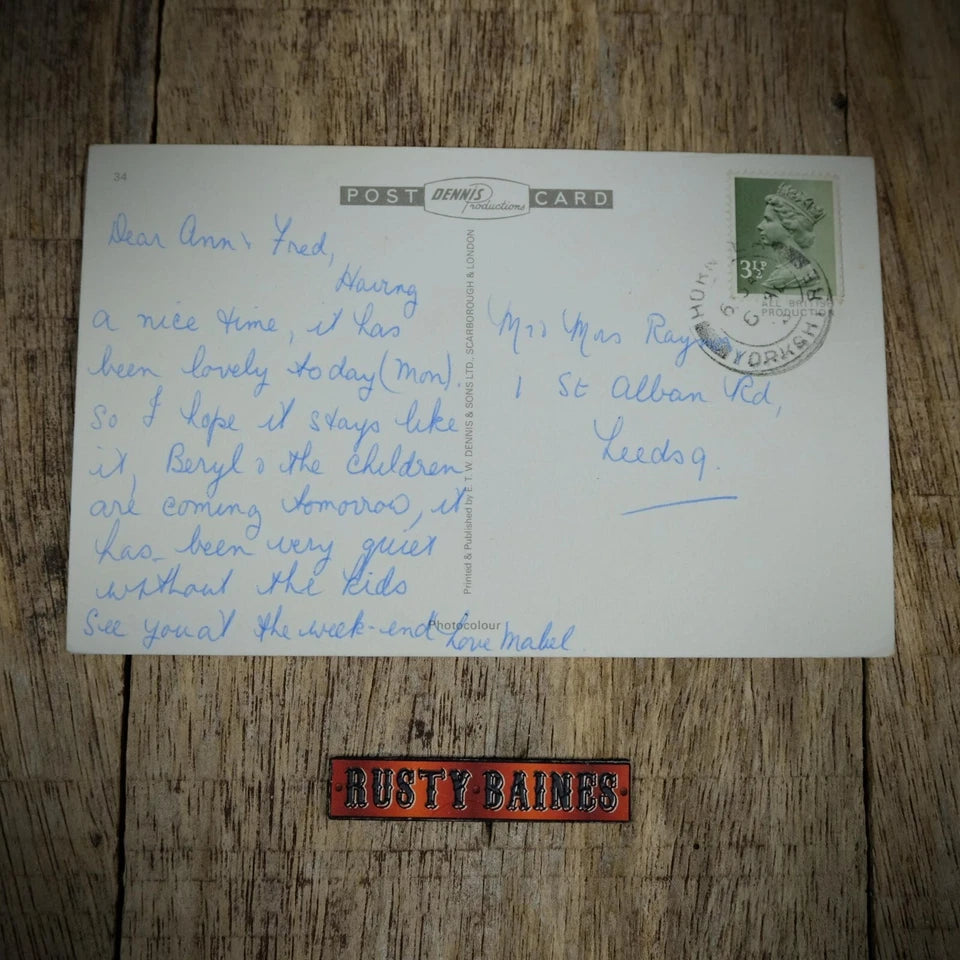 34
POST DENNIS Productions CARD
Dear Ann & Fred,
Having
a nice time, it has
been lovely today (Mon).
So I hope it stays like
it, Beryl & the children
are coming tomorrow, it
has been very quiet
without the kids
See you at the week-end Love Mabel
Printed & Published by E. T. W. DENNIS & SONS LTD., SCARBOROUGH & LONDON
Photocolour
3½P
ALL BRITISH
PRODUCTION
YORKSHIRE
Mr & Mrs
1 St Alban Rd,
Leeds 9.
RUSTY BAINES